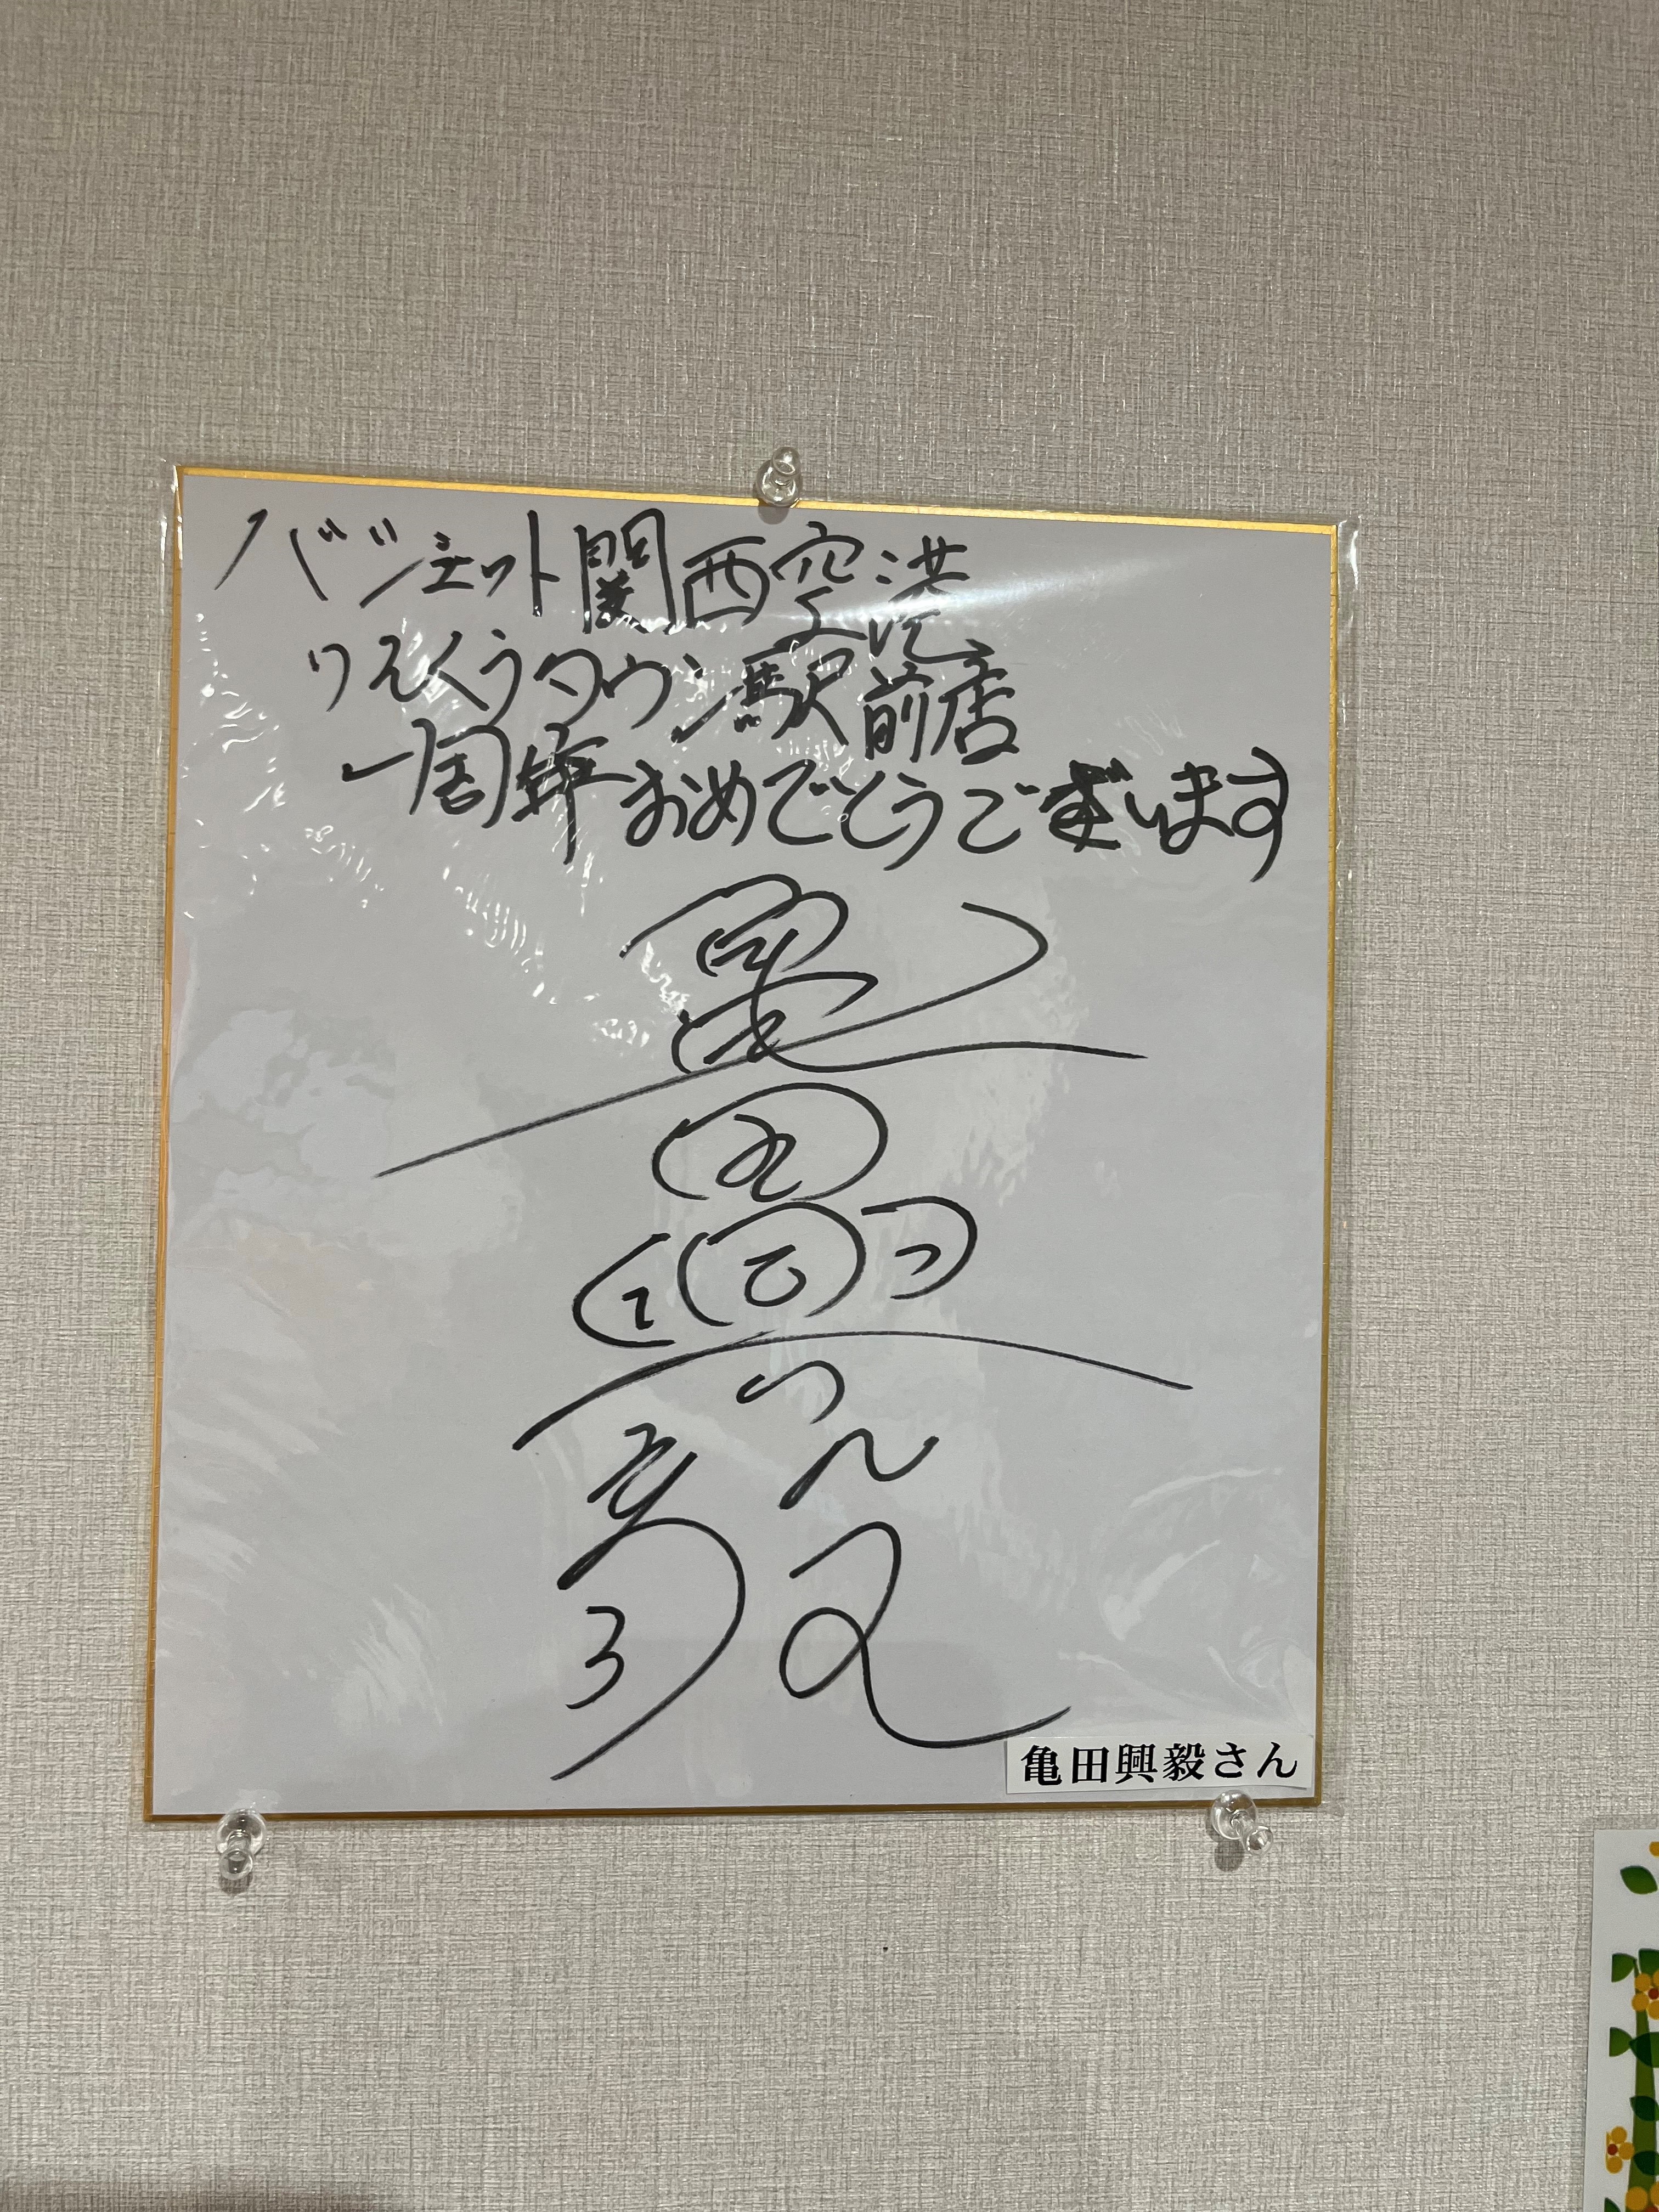 バジェット関西空港
りんくうタウン駅前店
一周年おめでとうございます
亀田興毅
亀田興毅さん